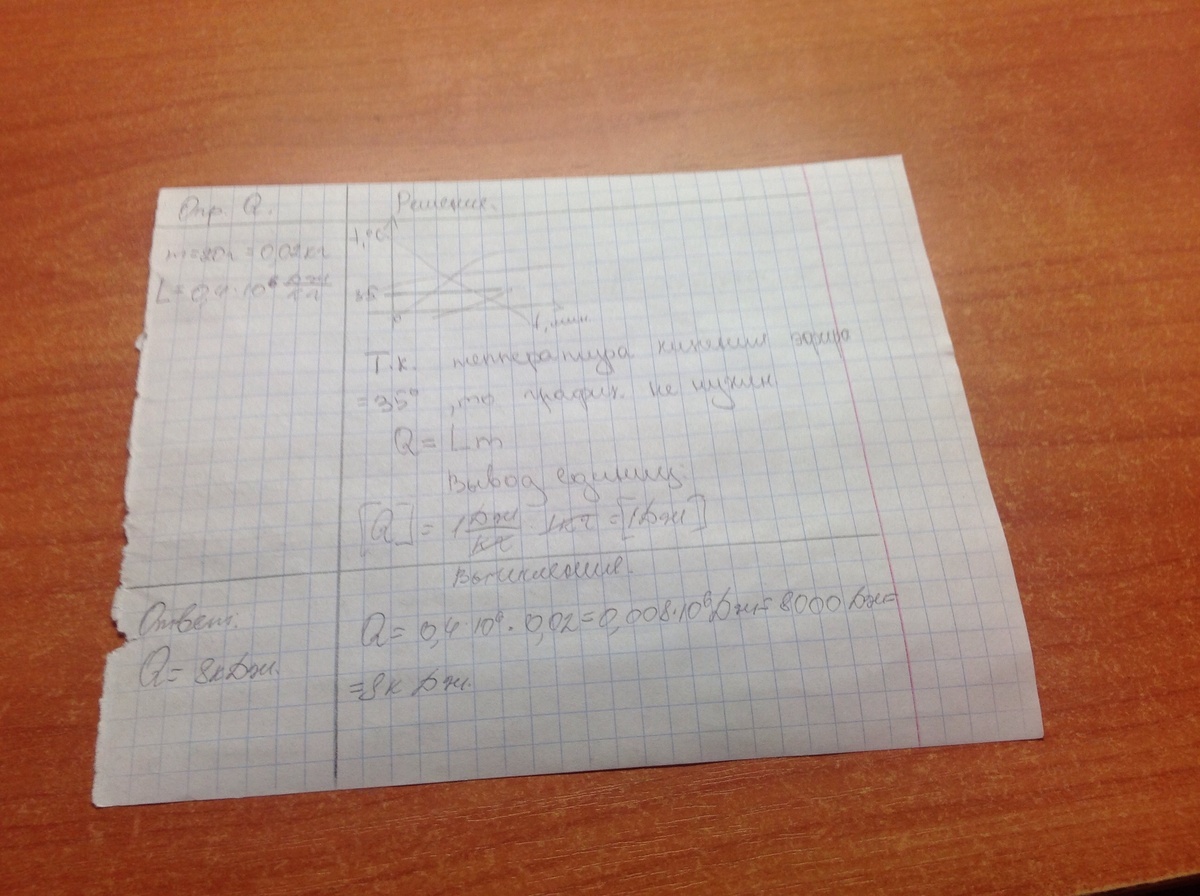 Опр. Q.
m=20г=0,02кг
L=0,4·10⁶ Дж/кг
Ответ:
Q= 8кДж.
Решение.
t,°C
35
0
t, мин
Т.к. температура кипения эфира
=35° ,то график. не нужен
Q= Lm
Вывод единиц:
[Q]= 1 Дж/кг · 1кг =[1Дж]
Вычисление.
Q= 0,4·10⁶· 0,02=0,008·10⁶Дж=8000Дж=
=8к Дж.